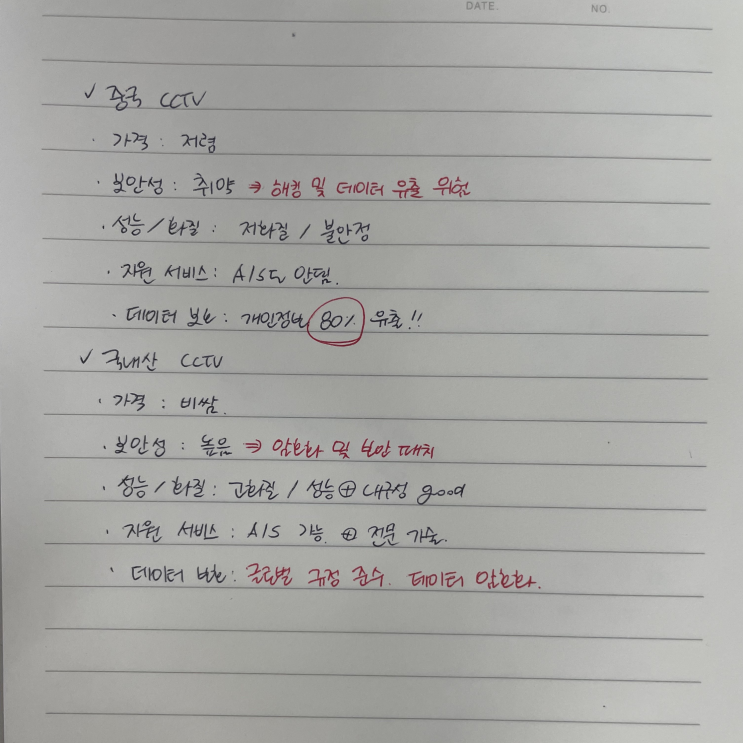 DATE. NO.
✓ 중국 CCTV
· 가격 : 저렴
· 보안성 : 취약 ⇒ 해킹 및 데이터 유출 위험
· 성능/화질 : 저화질 / 불안정
· 지원 서비스 : A/S도 안됨.
· 데이터 보호 : 개인정보 80% 유출!!
✓ 국내산 CCTV
· 가격 : 비쌈.
· 보안성 : 높음 ⇒ 암호화 및 보안 패치
· 성능/화질 : 고화질 / 성능⊕내구성 good
· 지원 서비스 : A/S 가능. ⊕ 전문 기술.
· 데이터 보호 : 글로벌 규정 준수. 데이터 암호화.